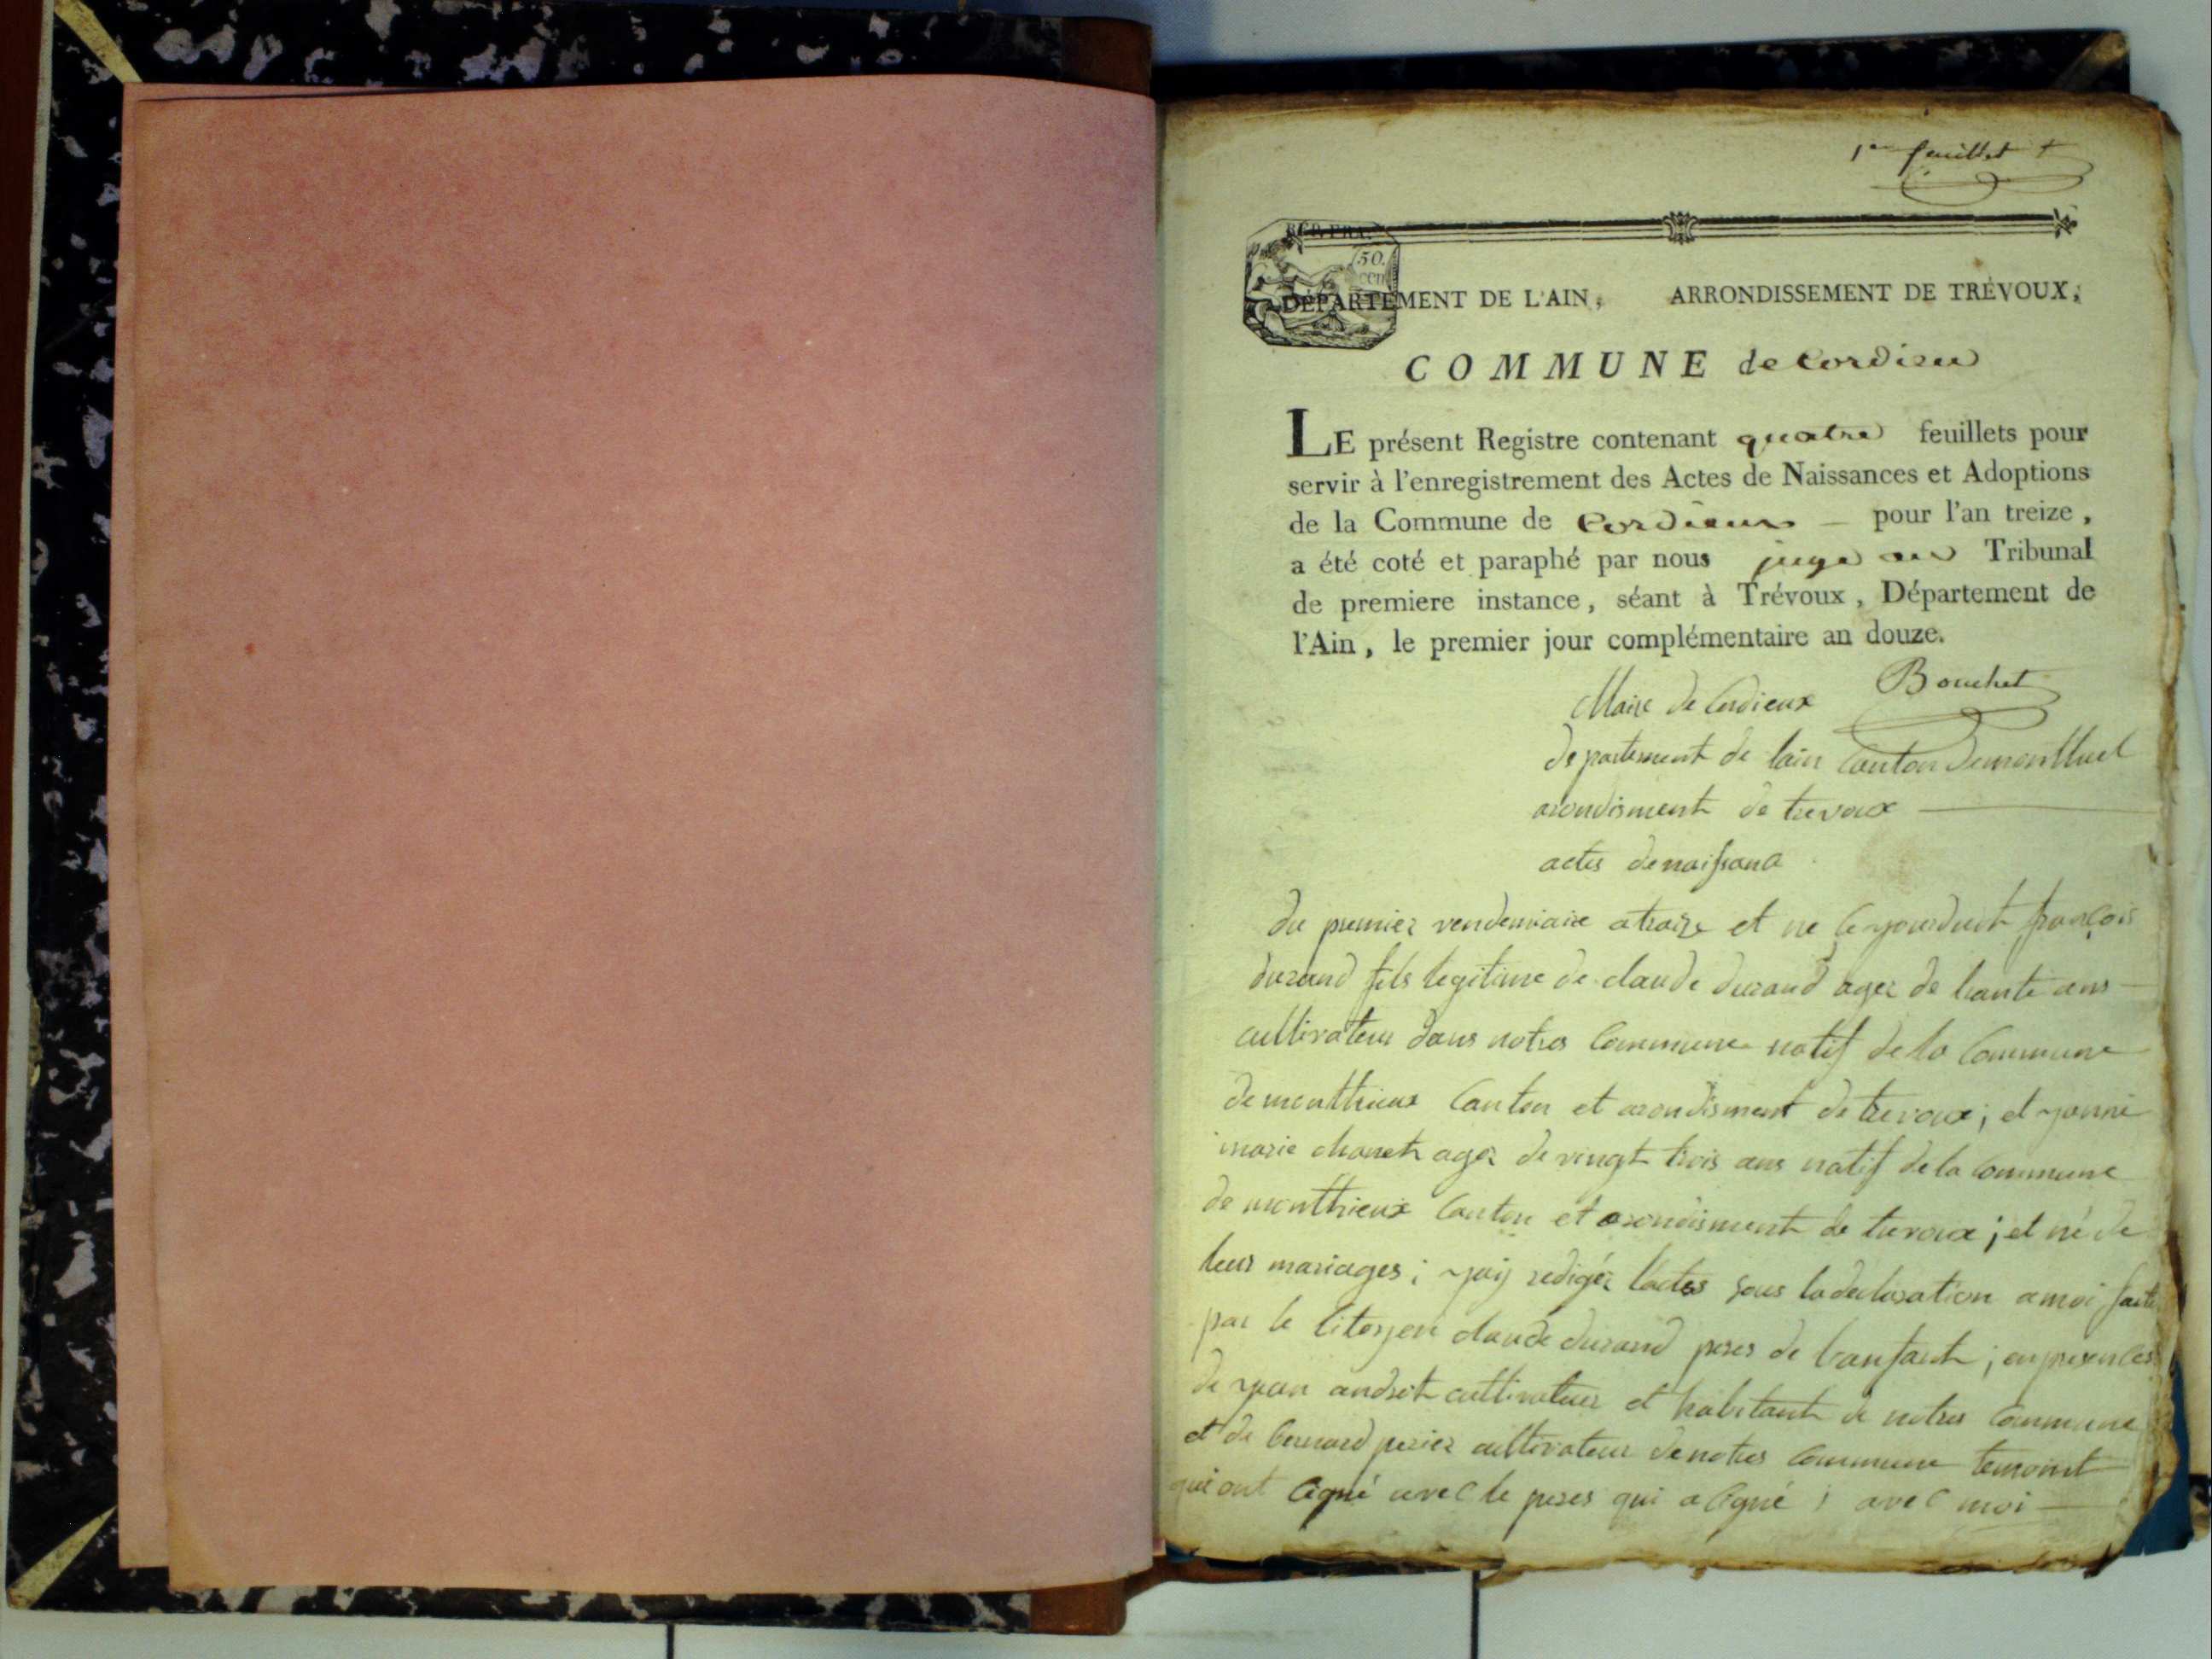 1er feuillet
REP. FRA.
50.
cen
DÉPARTEMENT DE L'AIN, ARRONDISSEMENT DE TRÉVOUX,
COMMUNE de Cordieu
LE présent Registre contenant quatre feuillets pour
servir à l'enregistrement des Actes de Naissances et Adoptions
de la Commune de Cordieux — pour l'an treize,
a été coté et paraphé par nous juge au Tribunal
de premiere instance, séant à Trévoux, Département de
l'Ain, le premier jour complémentaire an douze.
Bouchet
Maire de Cordieux
departement de lain Canton demontluel
arondisment de trevoux
actes denaissance
du premier vendemiaire atraize et ne françois
durand fils legitime de claude durand ager de trante ans
cultivateur dans notres Commune natif de la Commune
de monthieux Canton et arondisment de trevoux; et
marie ager de vingt trois ans natif de la Commune
de monthieux Canton et arondisment de trevoux; et né de
leur mariages; redigér lactes sous ladeclaration amoi faite
par le Citoyen claude durand peres de lanfant; anpresences
de andret cultivateur et habitant de notres Commune
et de bernard perier cultivateur denotres Commune temoint
qui ont Cigné avec le peres qui a Cigné; avec moi